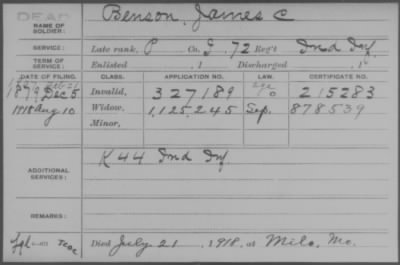 DEAD
NAME OF SOLDIER: Benson, James C
SERVICE: Late rank, P Co. I, 72 Reg't Ind Inf.
TERM OF SERVICE: Enlisted , 1 Discharged , 1
DATE OF FILING. CLASS. APPLICATION NO. LAW. CERTIFICATE NO.
1879 Dec 5 Invalid, 327189 215283
1918 Aug 10 Widow, 1,125,245 Sep. 878539
Minor,
ADDITIONAL SERVICES: K 44 Ind Inf.
REMARKS:
Died July 21, 1918, at Milo, Mo.